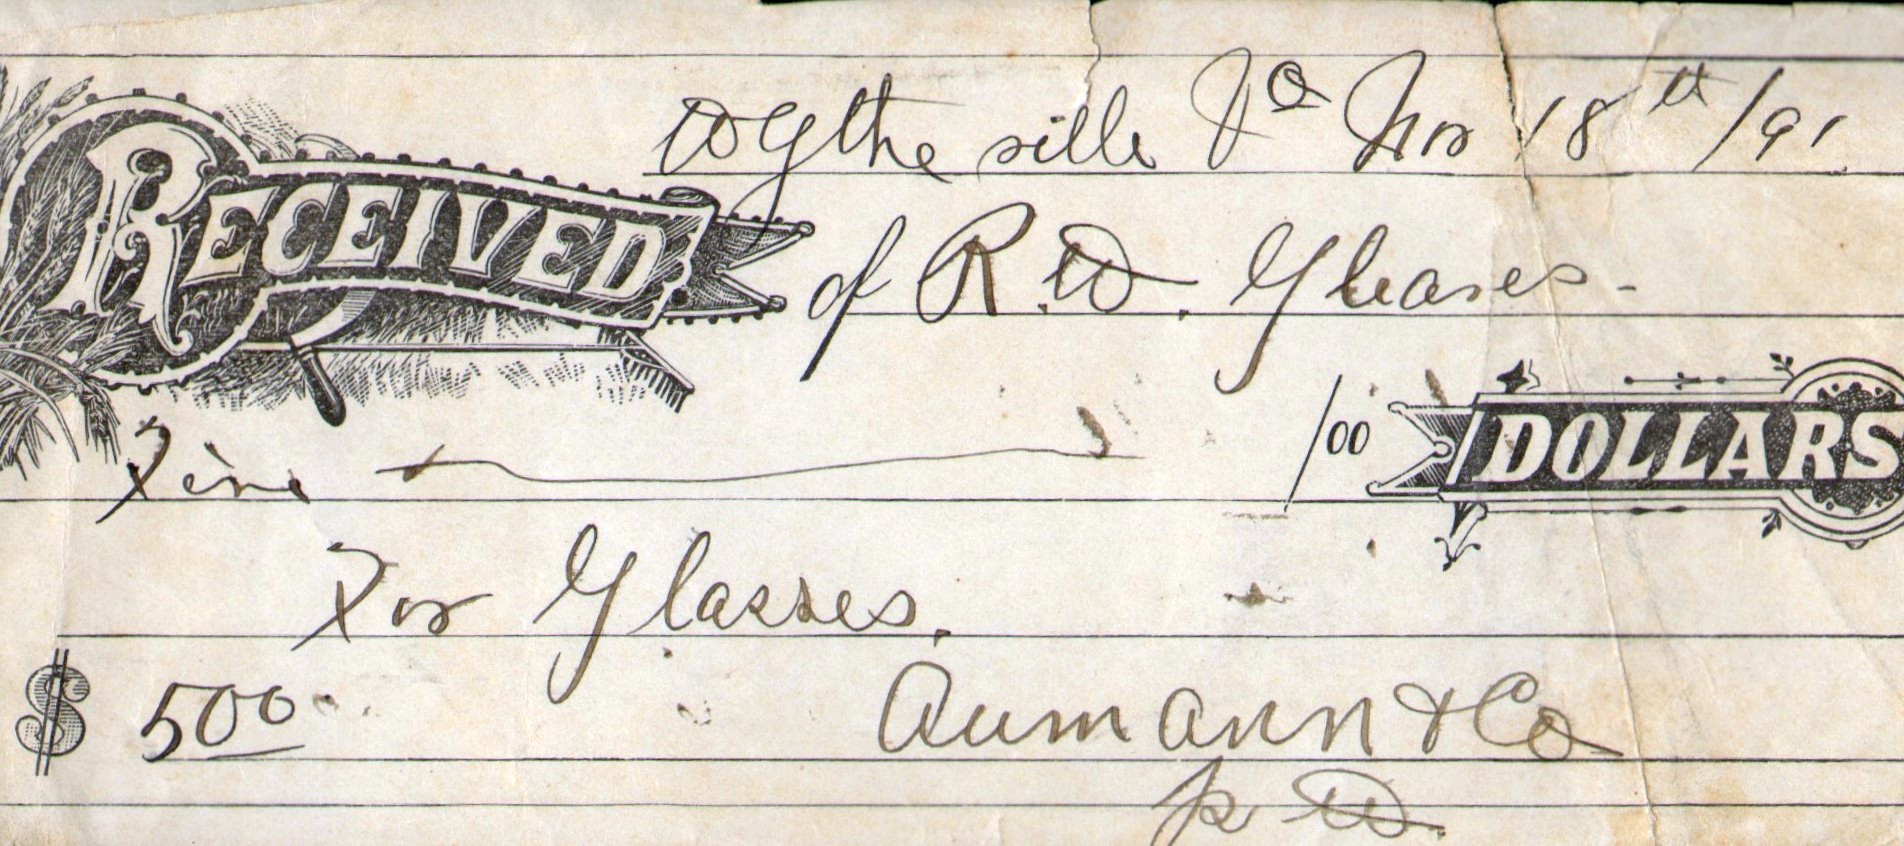 Wytheville Va Nov 18th/91
RECEIVED of R.W. Gleaves-
Five /00 DOLLARS
For Glasses.
$ 500
Aumann & Co
p W.